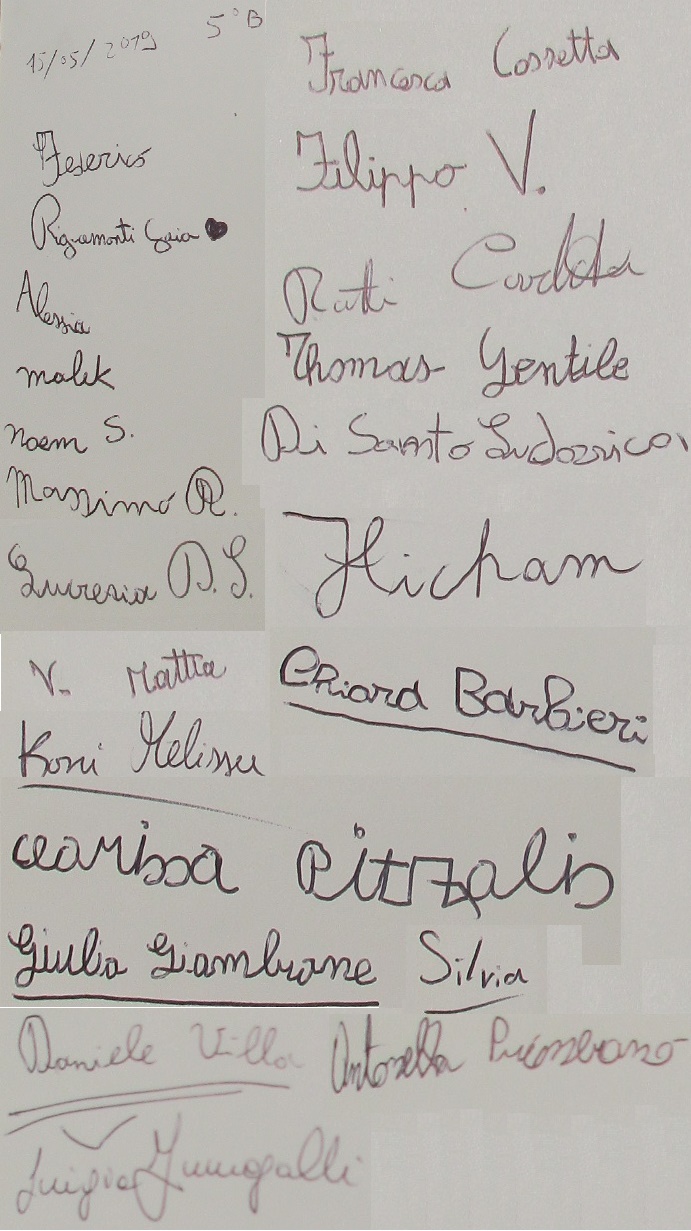 15/05/2019 5°B
Francesca Cossetta
Federico
Filippo V.
Rigamonti Gaia
Ratti Carlotta
Alessia
Thomas Gentile
malek
Di Santo Ludovica
noem S.
Massimo R.
Hicham
Lucrezia D.S.
V. Mattia
Chiara Barbieri
Koni Melissa
Clarissa Pitzalis
Giulia Giambrone Silvia
Daniele Villa Antonella
Luigia Fumagalli